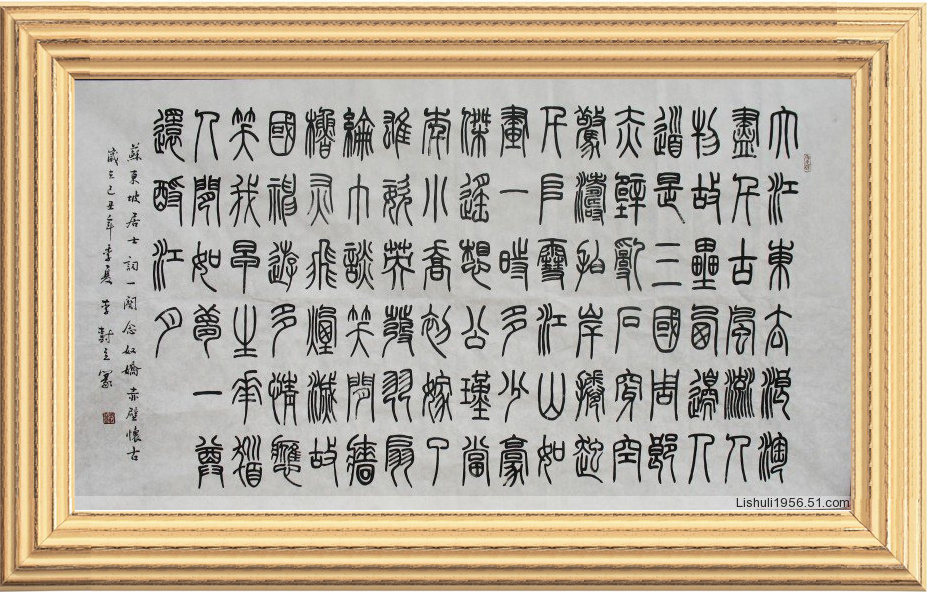 大江東去浪淘
盡千古風流人
物故壘西邊人
道是三國周郎
赤壁亂石穿空
驚濤拍岸捲起
千堆雪江山如
畫一時多少豪
傑遙想公瑾當
年小喬初嫁了
雄姿英發羽扇
綸巾談笑間牆
櫓灰飛煙滅故
國神遊多情應
笑我早生華髮
人間如夢一尊
還酹江月
蘇東坡居士詞一闋念奴嬌赤壁懷古
歲在己丑年季夏 李尌立篆
Lishuli1956.51.com